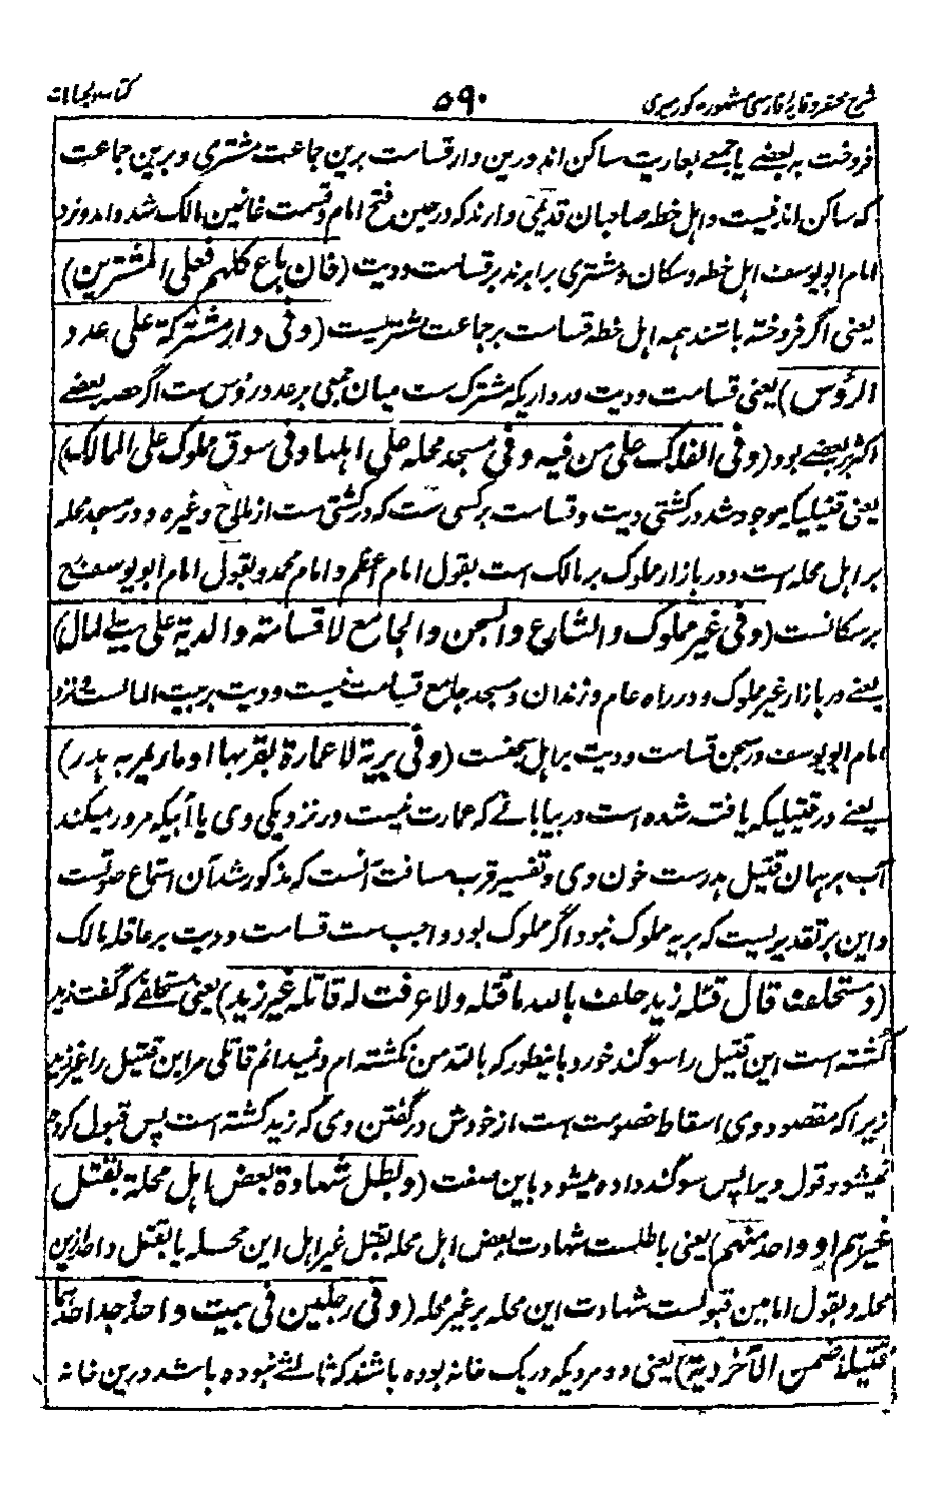 شرح مختصر وقایه فارسی مشهور به کور میری ۵۹۰ کتاب الجنایات
فروخت به بعضے یا جمعے بعاریت ساکن اند درین دار قسامت برین جماعت مشتری و برین جماعت
که ساکن اند نیست و اہل خطہ صاحبان قدیمی دارند که در حین فتح امام و قسمت غانمین مالک شده اند و نزد
امام ابو یوسف اہل خطہ و سکان و مشتری برابرند بر قسامت و دیت (فان باع کلہم فعلی المشترین)
یعنی اگر فروخته باشند ہمہ اہل خطہ قسامت بر جماعت مشتریست (وفی دار مشترکة علی عدد
الرؤس) یعنی قسامت و دیت در داریکہ مشترک ست میان جمعی بر عدد رؤس ست اگر حصہ بعضے
اکثر از بعضے بود (وفی الفلک علی من فیه وفی مسجد محلہ علی اہلہا وفی سوق مملوک علی المالک)
یعنی قتیلیکہ موجود شد در کشتی دیت و قسامت بر کسی ست کہ در کشتی ست از ملاح وغیرہ و در مسجد محلہ
بر اہل محلہ است و در بازار مملوک بر مالک است بقول امام اعظم و امام محمد و بقول امام ابو یوسف
بر سکانست (وفی غیر مملوک والشارع والسجن والجامع لا قسامة والدیة علی بیت المال)
یعنے در بازار غیر مملوک و در راه عام و زندان و مسجد جامع قسامت نیست و دیت بر بیت المالست و نزد
امام ابو یوسف در سجن قسامت و دیت بر اہل سجنست (وفی بریة لا عمارة بقربہا او ماء یمر بہ ہدر)
یعنے در قتیلیکہ یافتہ شده است در بیابانے کہ عمارت نیست در نزدیکی وی یا آبیکہ مرور میکند
آب بر ہمان قتیل ہدرست خون وی و تفسیر قرب مسافت آنست کہ مذکور شد آن استماع صوتست
و این بر تقدیریست کہ بریہ مملوک نبود اگر مملوک بود واجب ست قسامت و دیت بر عاقلہ مالک
(ومستحلف قال قتله زید حلف باللہ ما قتلہ ولا عرفت لہ قاتلا غیر زید) یعنی مستحلفے کہ گفت زید
کشتہ است این قتیل را سوگند خورد باینطور کہ باللہ من نکشتہ ام و نمیدانم قاتلی مر این قتیل را غیر زید
زیرا کہ مقصود وی اسقاط خصومت است از خودش در گفتن وی کہ زید کشتہ است پس قبول کرده
نمیشود قول ویرا پس سوگند داده میشود باین صفت (وبطل شہادة بعض اہل محلة بقتل
غیرہم او واحد منہم) یعنی باطلست شہادت بعض اہل محلہ بقتل غیر اہل این محلہ یا بقتل واحد ازین
محلہ و بقول امامین قبولست شہادت این محلہ بر غیر محلہ (وفی رجلین فی بیت واحد وجد احدہما
قتیلا ضمن الآخر دیتہ) یعنی دو مردیکہ در یک خانہ بوده باشند کہ ثالثے نبوده باشد درین خانہ